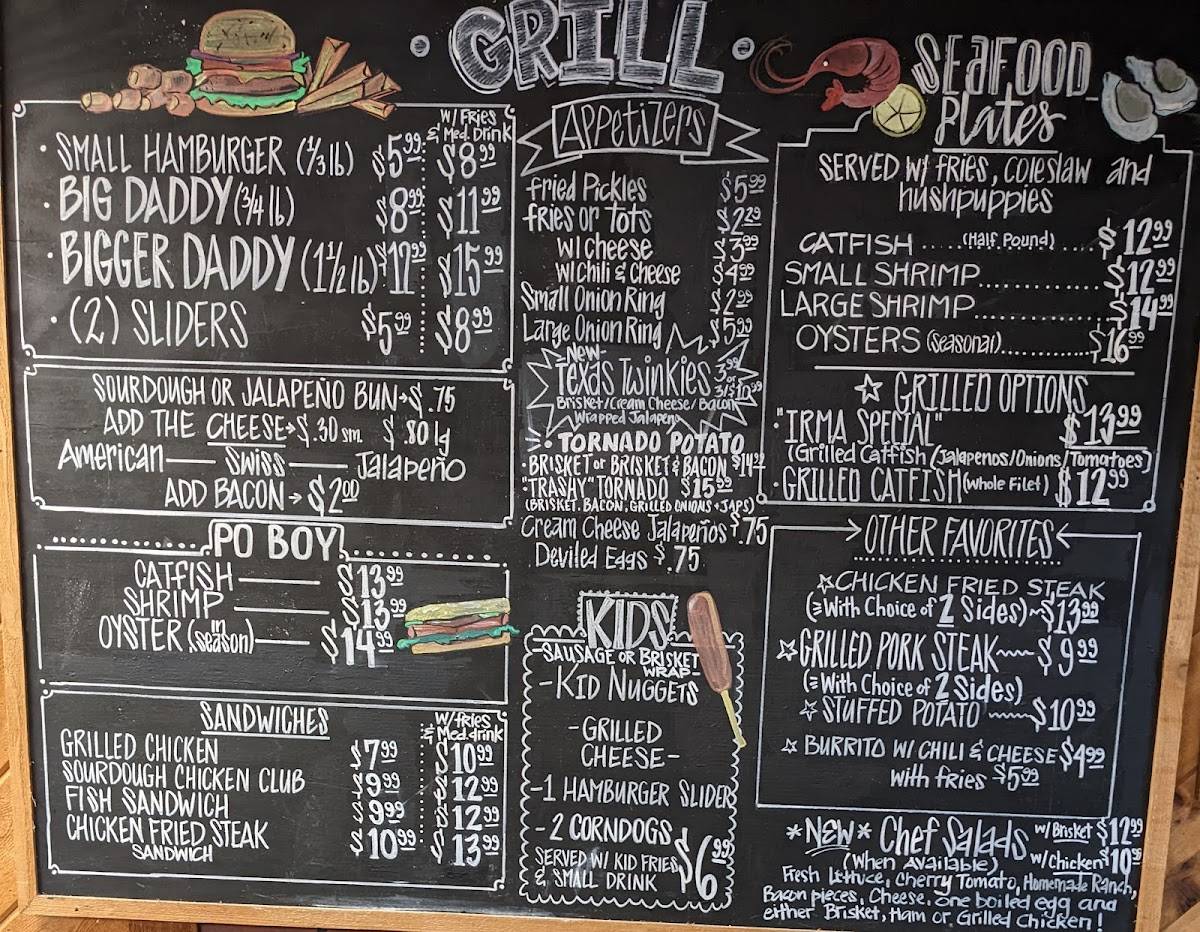 GRILL
W/Fries
& Med. Drink
SMALL HAMBURGER (1/3 lb) $5.99 $8.99
BIG DADDY (3/4 lb) $8.99 $11.99
BIGGER DADDY (1 1/2 lb) $12.99 $15.99
(2) SLIDERS $5.99 $8.99
SOURDOUGH OR JALAPEÑO BUN → $.75
ADD THE CHEESE → $.30 sm. $.80 lg
American — Swiss — Jalapeño
ADD BACON → $2.00
PO BOY
CATFISH $13.99
SHRIMP $13.99
OYSTER (in season) $14.99
SANDWICHES
W/fries
& Med. drink
GRILLED CHICKEN $7.99 $10.99
SOURDOUGH CHICKEN CLUB $9.99 $12.99
FISH SANDWICH $9.99 $12.99
CHICKEN FRIED STEAK $10.99 $13.99
SANDWICH
Appetizers
Fried Pickles $5.99
Fries or Tots $2.29
W/ Cheese $3.99
W/ Chili & Cheese $4.99
Small Onion Ring $2.99
Large Onion Ring $5.99
-New-
Texas Twinkies 3.99
Brisket/Cream Cheese/Bacon
Wrapped Jalapeno
TORNADO POTATO
• BRISKET or BRISKET & BACON
"TRASHY" TORNADO $15.99
(BRISKET, BACON, GRILLED ONIONS + JAPS)
Cream Cheese Jalapeños $.75
Deviled Eggs $.75
KIDS
SAUSAGE OR BRISKET
WRAP-
-KID NUGGETS
-GRILLED
CHEESE-
-1 HAMBURGER SLIDER
-2 CORNDOGS
SERVED W/ KID FRIES
& SMALL DRINK $6.99
SEAFOOD
Plates
SERVED W/ fries, coleslaw and
hushpuppies
CATFISH .... (Half Pound) .... $12.99
SMALL SHRIMP.............. $12.99
LARGE SHRIMP.............. $14.99
OYSTERS (Seasonal)............ $16.99
☆ GRILLED OPTIONS
• "IRMA SPECIAL" $13.99
(Grilled Catfish (Jalapenos/Onions/Tomatoes)
• GRILLED CATFISH (Whole Filet) $12.99
OTHER FAVORITES
☆ CHICKEN FRIED STEAK
(With Choice of 2 Sides) ~ $13.99
☆ GRILLED PORK STEAK ~~~ $9.99
(With Choice of 2 Sides)
☆ STUFFED POTATO ~~~ $10.99
☆ BURRITO W/ CHILI & CHEESE $4.99
with fries $5.99
*NEW* Chef Salads w/ Brisket $12.99
(When Available) w/ Chicken $10.99
Fresh Lettuce, Cherry Tomato, Homemade Ranch,
Bacon pieces, Cheese, one boiled egg and
either Brisket, Ham or Grilled Chicken!